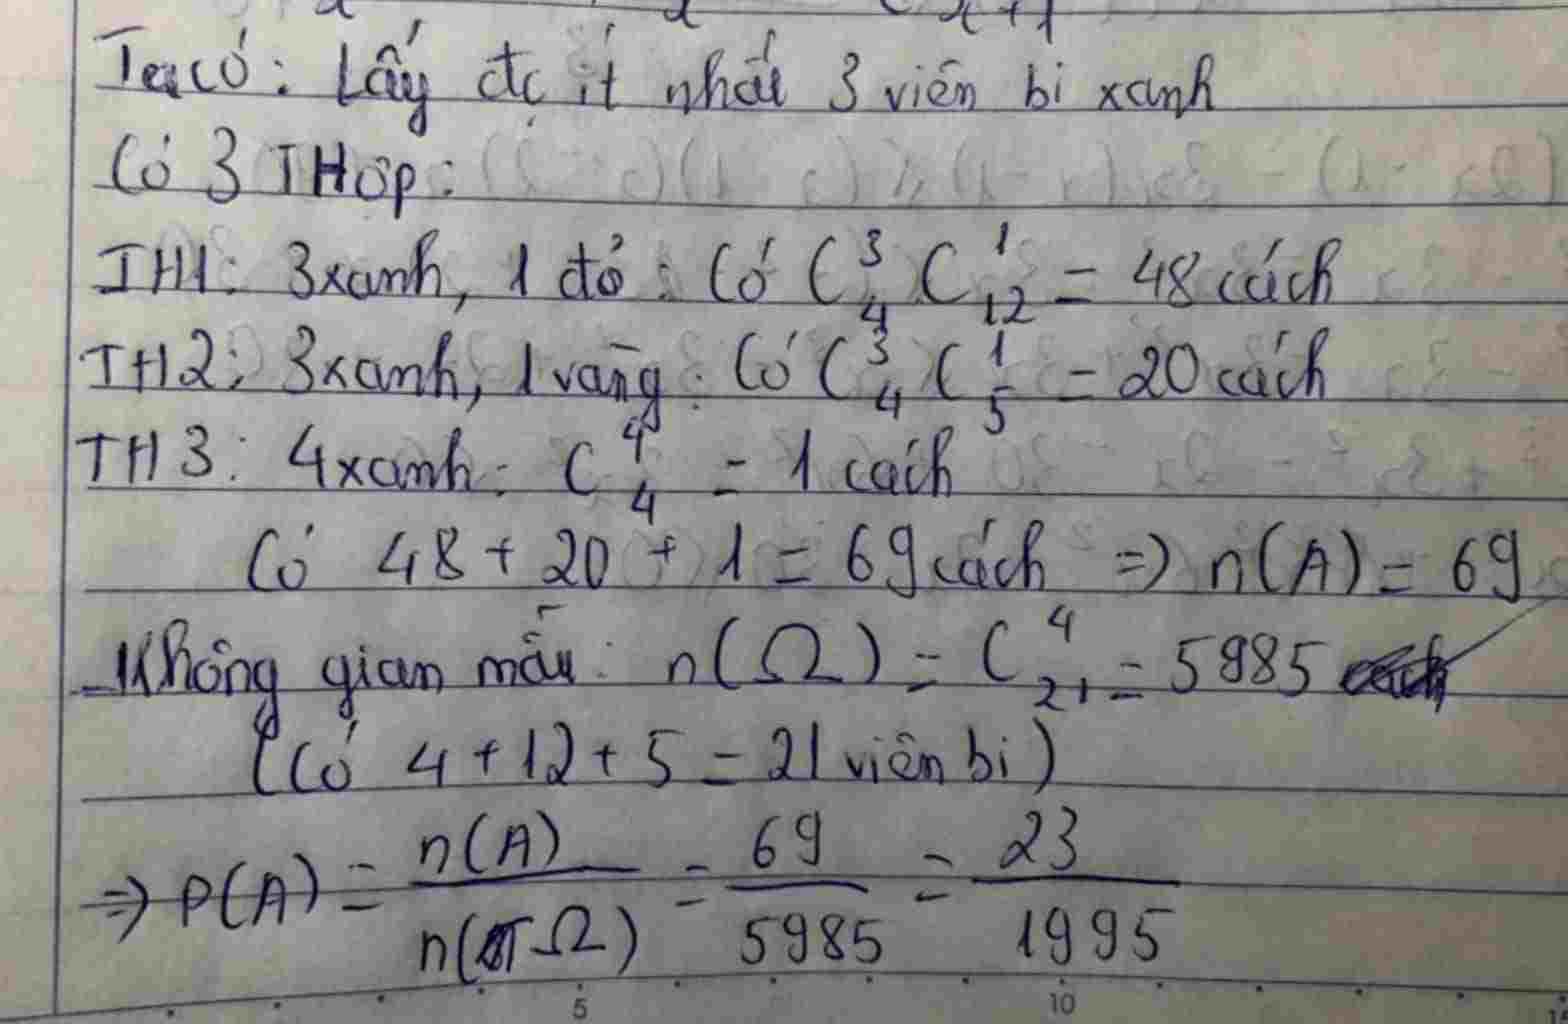 Ta có: Lấy đc ít nhất 3 viên bi xanh
Có 3 THợp:
TH1: 3xanh, 1 đỏ: Có C³₄ C¹₁₂ = 48 cách
TH2: 3xanh, 1 vàng: Có C³₄ C¹₅ = 20 cách
TH3: 4xanh: C⁴₄ = 1 cách
Có 48 + 20 + 1 = 69 cách => n(A) = 69
Không gian mẫu: n(Ω) = C⁴₂₁ = 5985
(Có 4 + 12 + 5 = 21 viên bi)
=> P(A) = n(A)/n(Ω) = 69/5985 = 23/1995
5 10